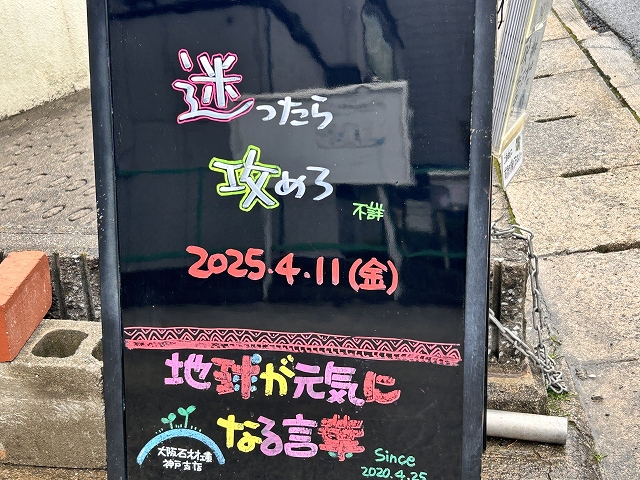 迷ったら
攻めろ
不詳
2025.4.11(金)
地球が元気に
なる言葉
大阪石材工業
神戸支店
Since
2020.4.25